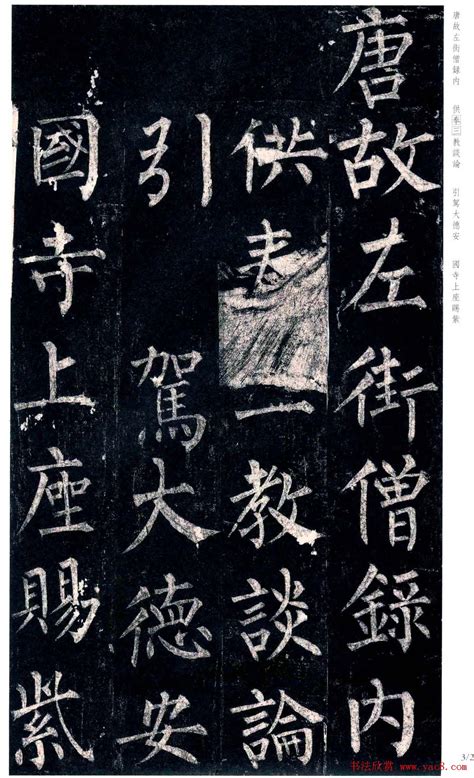 唐故左街僧錄内
供奉三教談論
引駕大德安
國寺上座賜紫
唐故左街僧録内 供奉三教談論 引駕大德安 國寺上座賜紫
3/2
书法欣赏 www.yac8.com